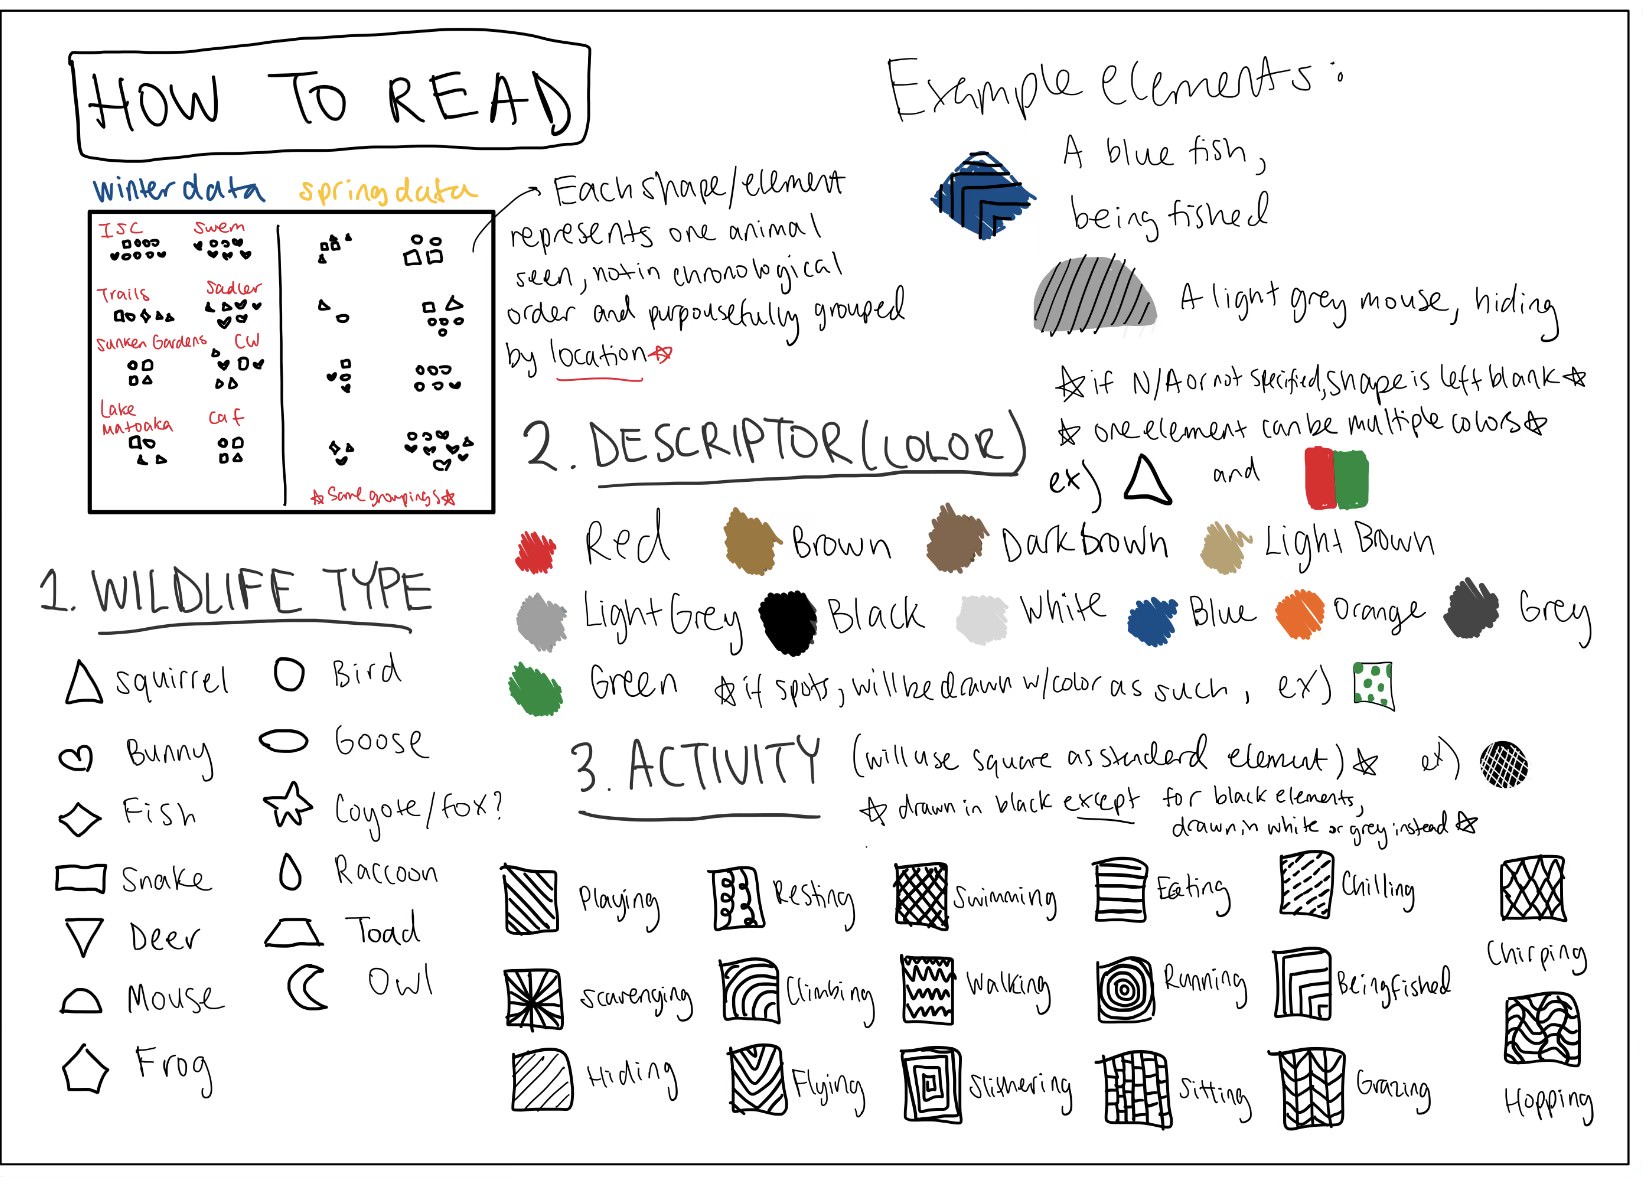 HOW TO READ
winter data
spring data
ISC
Swem
Trails
Sadler
Sunken Gardens
CW
Lake
Matoaka
Caf
☆ Same groupings ☆
Each shape/element
represents one animal
seen, not in chronological
order and purpousefully grouped
by location ☆
Example elements:
A blue fish,
being fished
A light grey mouse, hiding
☆ if N/A or not specified, shape is left blank ☆
☆ one element can be multiple colors ☆
ex)
and
1. WILDLIFE TYPE
Squirrel
Bird
Bunny
Goose
Fish
Coyote/fox?
Snake
Raccoon
Deer
Toad
Mouse
Owl
Frog
2. DESCRIPTOR (COLOR)
Red
Brown
Dark brown
Light Brown
Light Grey
Black
White
Blue
Orange
Grey
Green
☆ if spots, will be drawn w/color as such, ex)
3. ACTIVITY
(will use square as standerd element) ☆ ex)
☆ drawn in black except for black elements,
drawn in white or grey instead ☆
Playing
Resting
Swimming
Eating
Chilling
Chirping
Scavenging
Climbing
Walking
Running
Being fished
Hiding
Flying
Slithering
Sitting
Grazing
Hopping